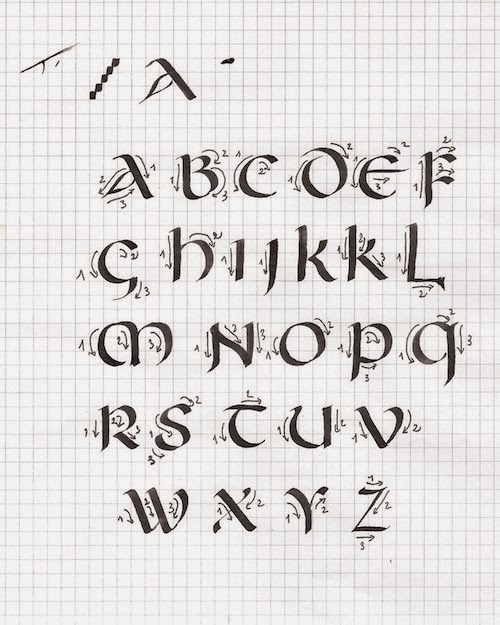 A
A B C D E F
G H I J K K L
M N O P Q
R S T U V
W X Y Z